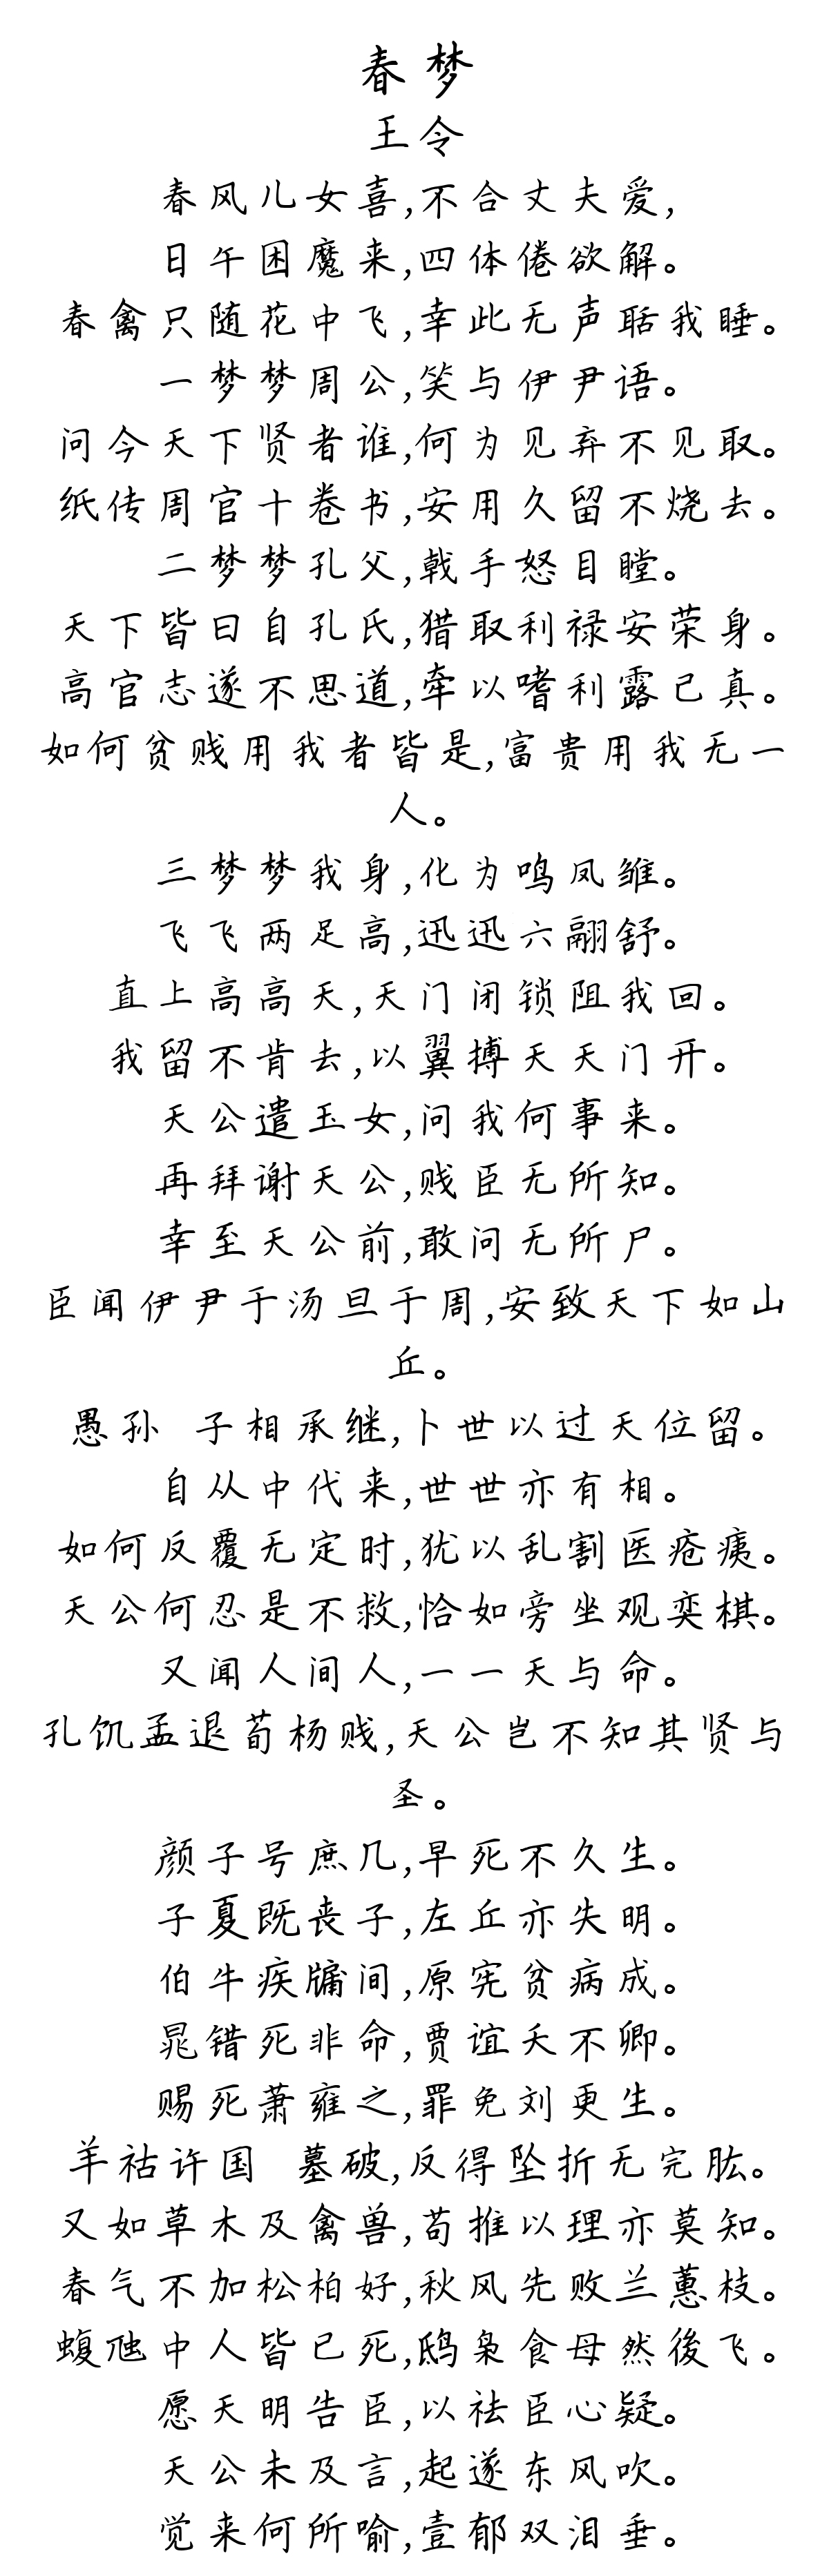 春梦
王令
春风儿女喜,不合丈夫爱,
日午困魔来,四体倦欲解。
春禽只随花中飞,幸此无声聒我睡。
一梦梦周公,笑与伊尹语。
问今天下贤者谁,何为见弃不见取。
纸传周官十卷书,安用久留不烧去。
二梦梦孔父,戟手怒目瞠。
天下皆曰自孔氏,猎取利禄安荣身。
高官志遂不思道,牵以嗜利露己真。
如何贫贱用我者皆是,富贵用我无一
人。
三梦梦我身,化为鸣凤雏。
飞飞两足高,迅迅六翮舒。
直上高高天,天门闭锁阻我回。
我留不肯去,以翼搏天天门开。
天公遣玉女,问我何事来。
再拜谢天公,贱臣无所知。
幸至天公前,敢问无所尸。
臣闻伊尹于汤旦于周,安致天下如山
丘。
愚孙 子相承继,卜世以过天位留。
自从中代来,世世亦有相。
如何反覆无定时,犹以乱割医疮痍。
天公何忍是不救,恰如旁坐观奕棋。
又闻人间人,一一天与命。
孔饥孟退荀杨贱,天公岂不知其贤与
圣。
颜子号庶几,早死不久生。
子夏既丧子,左丘亦失明。
伯牛疾牖间,原宪贫病成。
晁错死非命,贾谊夭不卿。
赐死萧雍之,罪免刘更生。
羊祜许国 墓破,反得坠折无完肱。
又如草木及禽兽,苟推以理亦莫知。
春气不加松柏好,秋风先败兰蕙枝。
蝮虺中人皆已死,鸱枭食母然後飞。
愿天明告臣,以祛臣心疑。
天公未及言,起遂东风吹。
觉来何所喻,壹郁双泪垂。